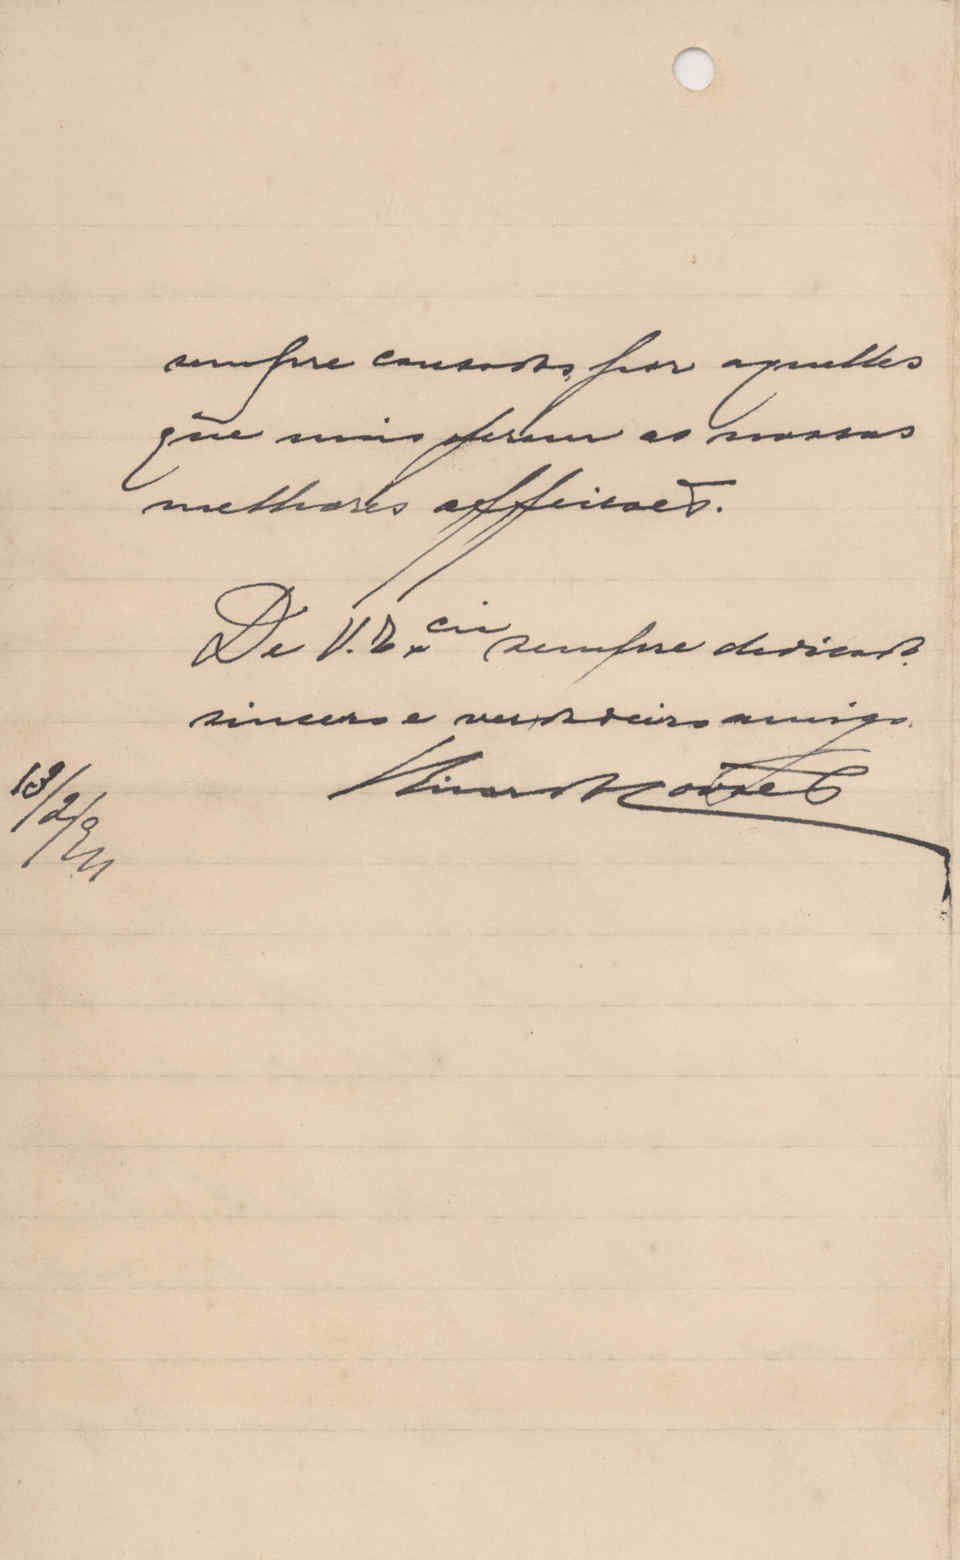 sempre causados por aquelles
que mais ferem as nossas
melhores affeições.
De V. Ex.cia sempre dedicado,
sincero e verdadeiro amigo.
Ricardo
13/2/911